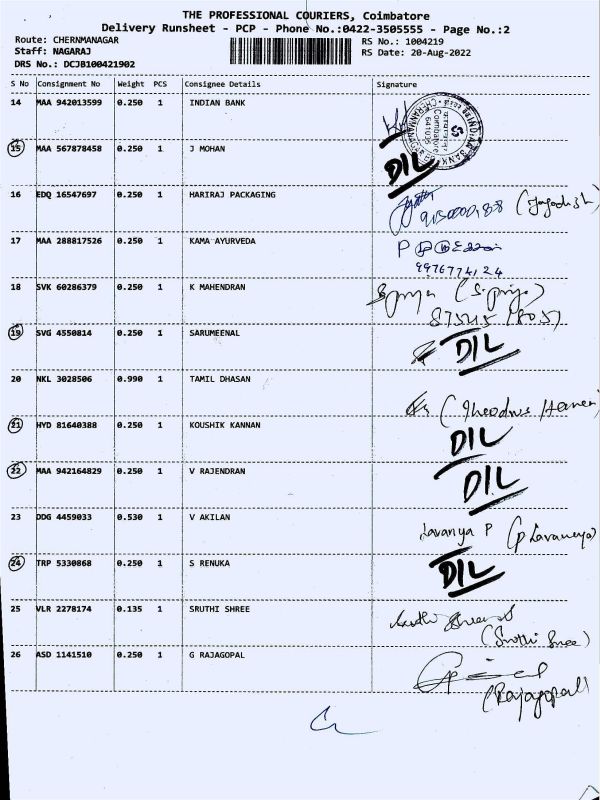 THE PROFESSIONAL COURIERS, Coimbatore
Delivery Runsheet - PCP - Phone No.:0422-3505555 - Page No.:2
Route: CHERNMANAGAR RS No.: 1004219
Staff: NAGARAJ RS Date: 20-Aug-2022
DRS No.: DCJB100421902
S No Consignment No Weight PCS Consignee Details Signature
14 MAA 942013599 0.250 1 INDIAN BANK
Coimbatore
641035
15 MAA 567878458 0.250 1 J MOHAN
D/L
16 EDQ 16547697 0.250 1 HARIRAJ PACKAGING
(Jagadish)
17 MAA 288817526 0.250 1 KAMA AYURVEDA
9976774124
18 SVK 60286379 0.250 1 K MAHENDRAN
(S.priya)
19 SVG 4550814 0.250 1 SARUMEENAL
D/L
20 NKL 3028506 0.990 1 TAMIL DHASAN
21 HYD 81640388 0.250 1 KOUSHIK KANNAN
D/L
22 MAA 942164829 0.250 1 V RAJENDRAN
D/L
23 DDG 4459033 0.530 1 V AKILAN
Lavanya P (P Lavanya)
24 TRP 5330868 0.250 1 S RENUKA
D/L
25 VLR 2278174 0.135 1 SRUTHI SHREE
(Sruthi Sree)
26 ASD 1141510 0.250 1 G RAJAGOPAL
(Rajagopal)